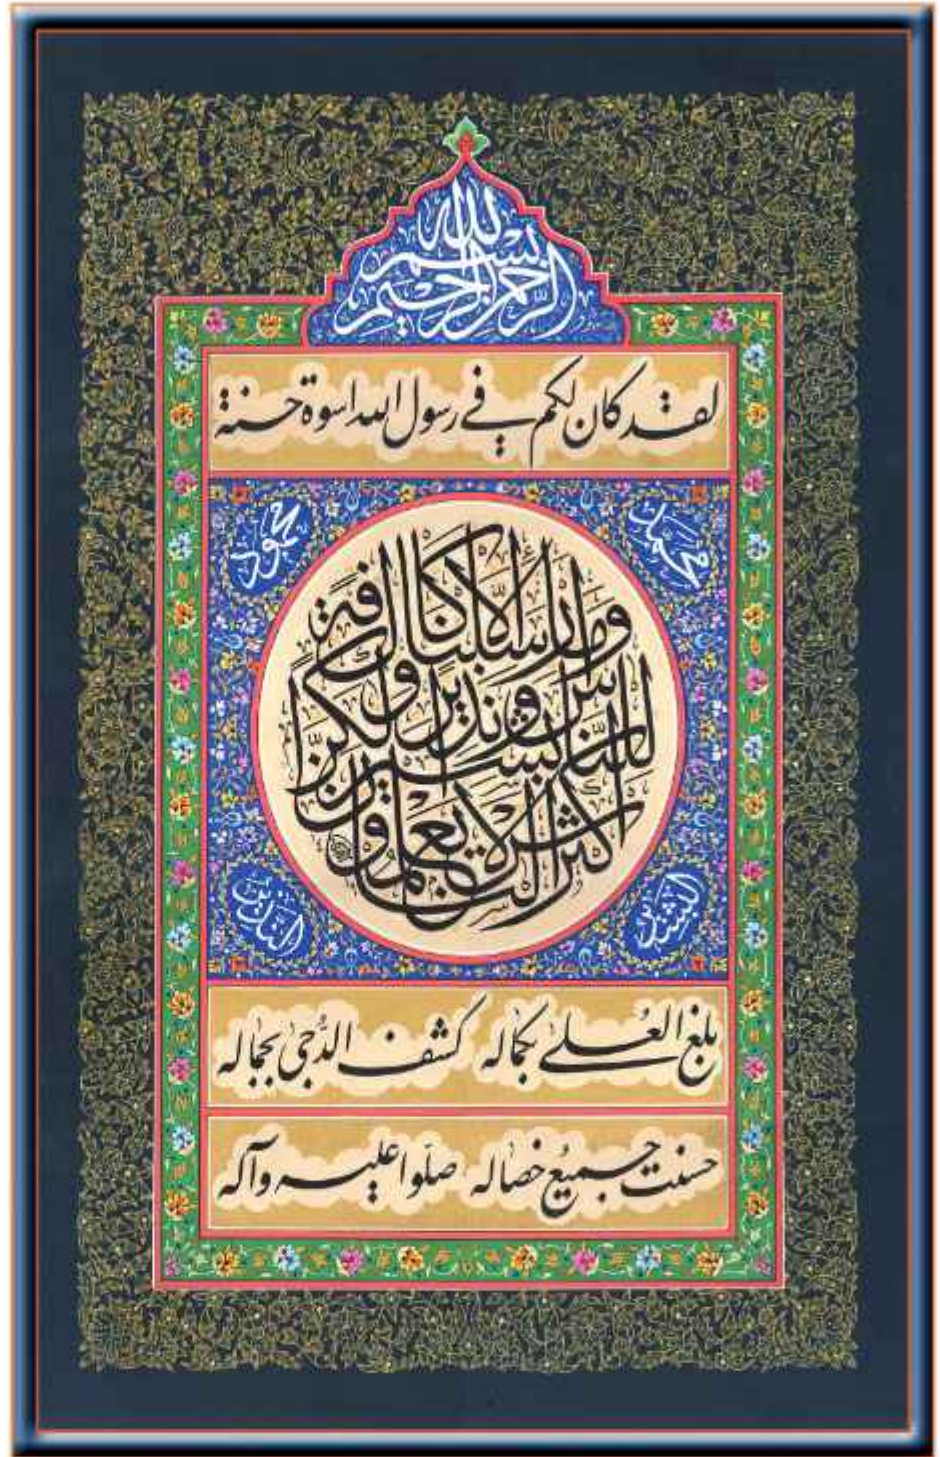 بسم الله الرحمن الرحيم
لقد كان لكم في رسول الله اسوة حسنة
محمد
محمود
وَمَا أَرْسَلْنَاكَ إِلَّا كَافَّةً
لِلنَّاسِ بَشِيرًا وَنَذِيرًا وَلَكِنَّ
أَكْثَرَ النَّاسِ لَا يَعْلَمُونَ
البشير
النذير
بلغ العُلے بكماله كشف الدُّجىٰ بجماله
حسنت جميعُ خصاله صلّوا عليه وآله